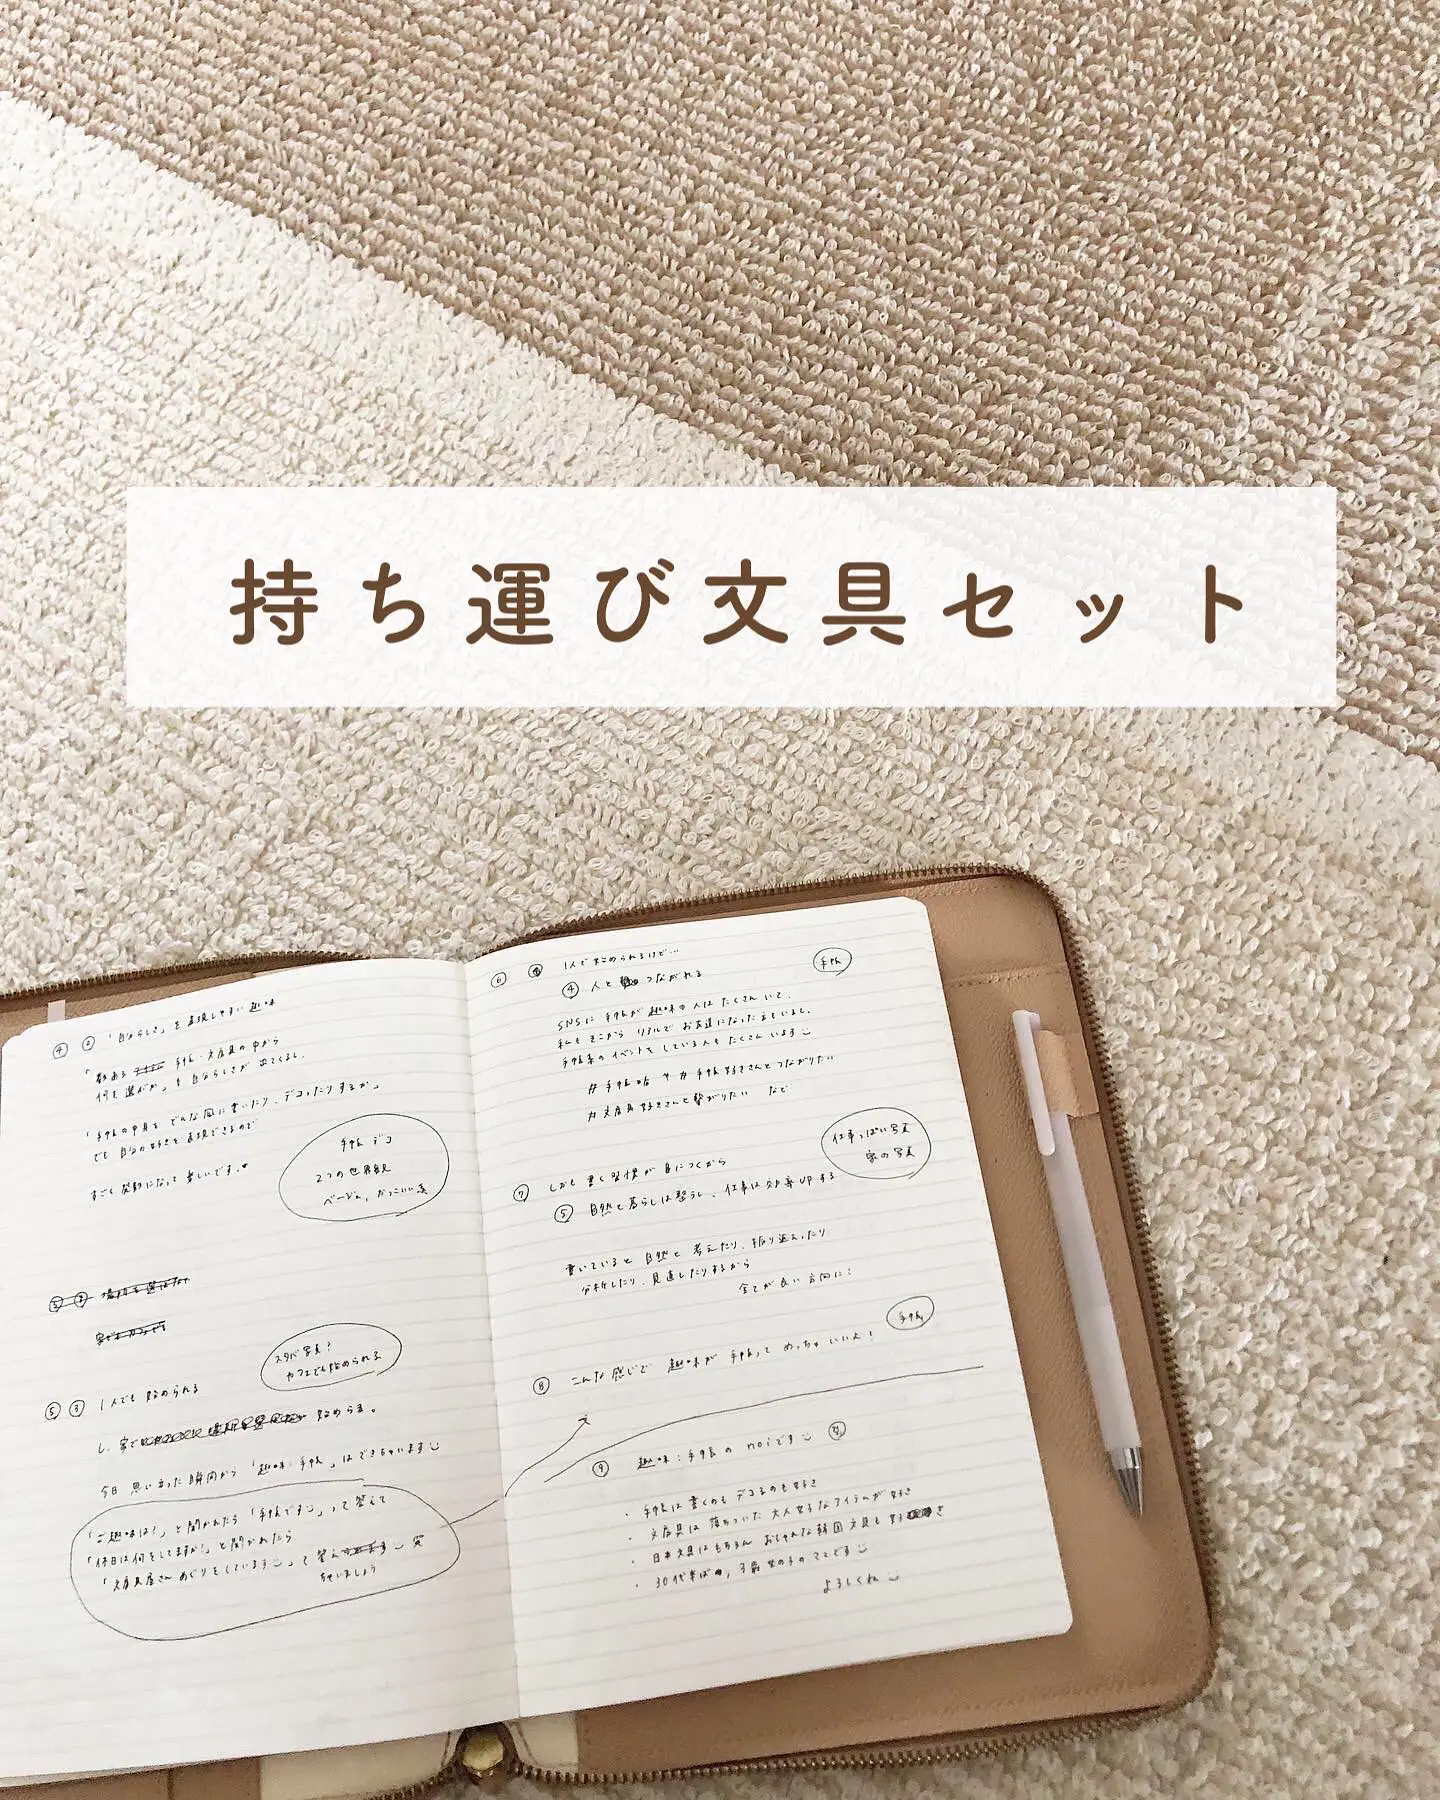 持ち運び文具セット
④ ② 「自分らしさ」を表現しやすい趣味
「数ある 手帳・文房具の中から
何を選ぶか」も自分らしさが出てくるし、
「手帳の中身をどんな風に書いたり、デコったりするか」
でも自分の好きを表現できるので
すごく になって楽しいです。
手帳デコ
2つの世界観
ベージュ、かっこいい系
⑤ ③ 場所を選ばない
スタバ写真?
カフェでも始められる
⑤ ③ 1人でも始められる
家で 始められる。
今日思い立った瞬間から「趣味:手帳」はできちゃいます
「ご趣味は?」と聞かれたら「手帳です」って答えて
「休日は何をしてますか?」と聞かれたら
「文房具屋さんめぐりをしています」って答え
ちゃいましょう
⑥ 1人で始められるけど…
④ 人と つながれる
手帳
SNSに手帳が趣味の人はたくさんいて、
私もそこからリアルでお友達になった方もいるし、
手帳系のイベントをしている人もたくさんいます
#手帳 や #手帳好きさんとつながりたい
#文房具好きさんと繋がりたい など
仕事っぽい写真
家の写真
⑦ しかも書く習慣が身につくから
⑤ 自然と暮らしは整うし、仕事は効率UPする
書いていると自然と考えたり、振り返ったり
分析したり、見直したりするから
全てが良い方向に!
手帳
⑧ こんな感じで趣味が手帳ってめっちゃいいよ!
⑨ 趣味:手帳の noiです
・手帳は書くのもデコるのも好き
・文房具は落ちついた大人 なアイテムが好き
・日本文具はもちろんおしゃれな韓国文具も好き
・30代半ばの、3歳女の子のママです
よろしくね